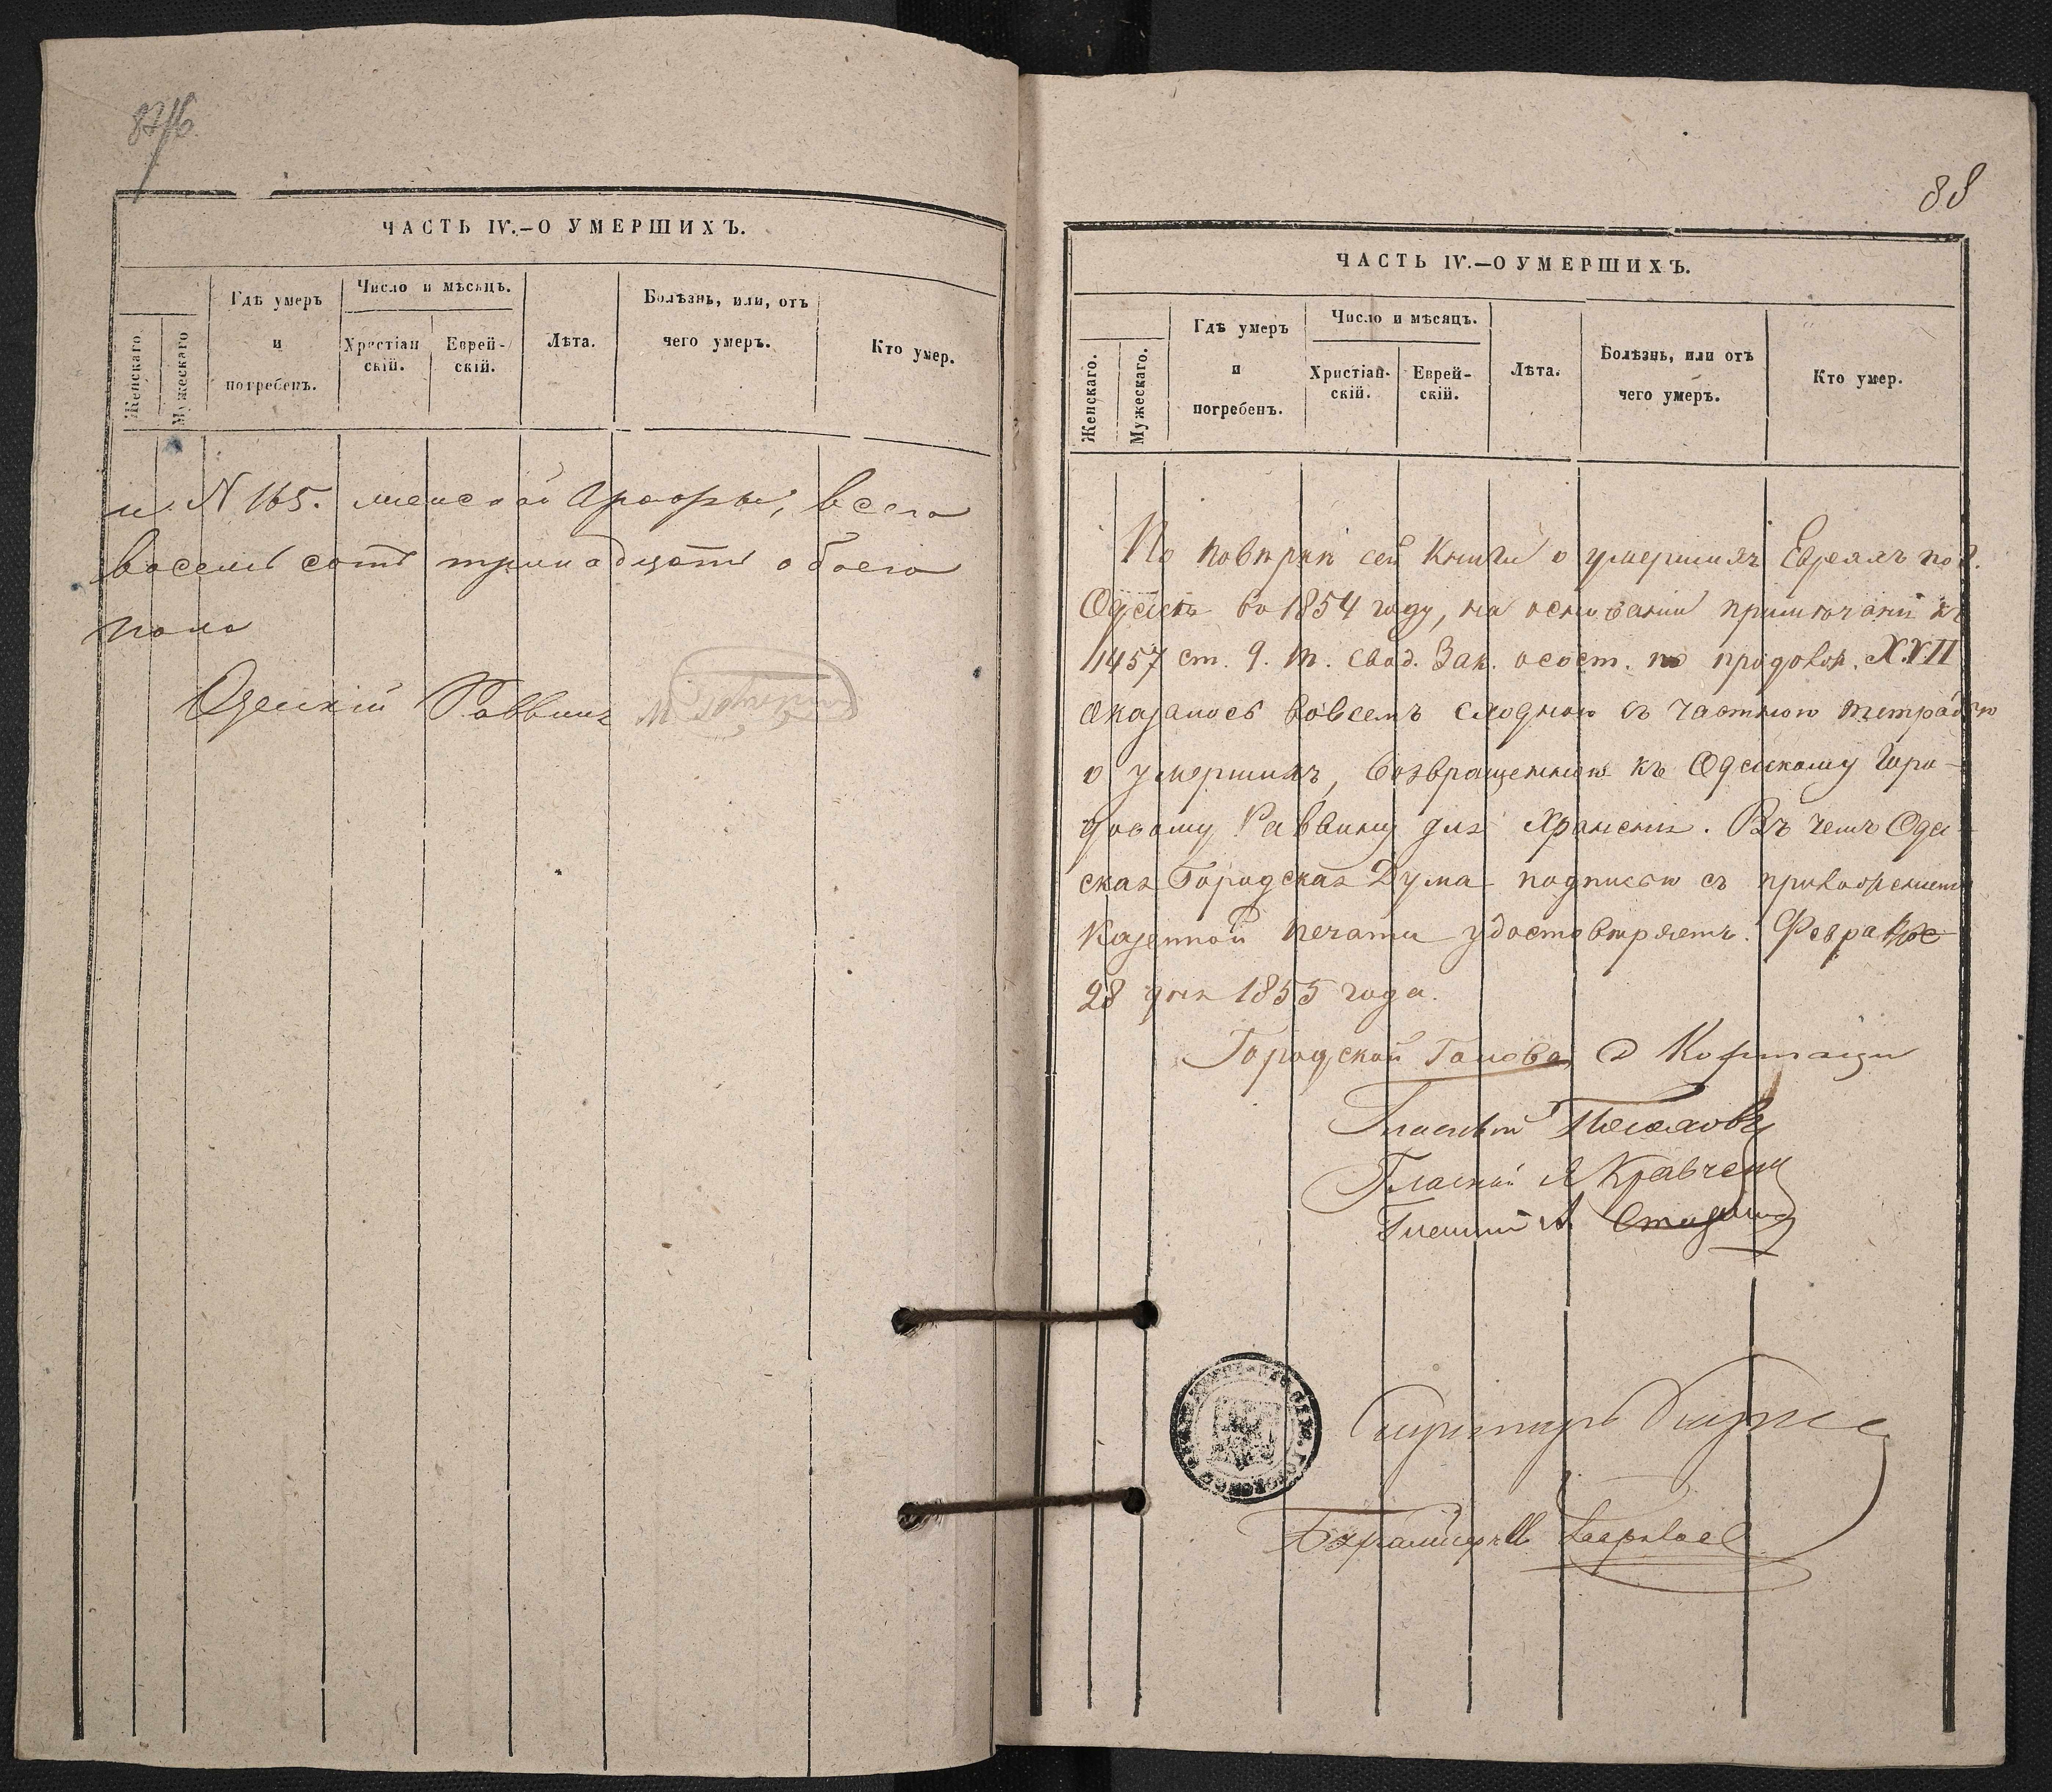 87/б
ЧАСТЬ IV.–О УМЕРШИХЪ.
Женскаго
Мужескаго
Гдѣ умеръ
и
погребенъ.
Число и мѣсяцъ.
Христіан
скій.
Еврей-
скій.
Лѣта.
Болѣзнь, или, отъ
чего умеръ.
Кто умер.
и N 165. женской графы, всего
восемь сотъ тринадцать обоего
пола
Одескій Раввинъ
88
ЧАСТЬ IV.—О УМЕРШИХЪ.
Женскаго.
Мужескаго.
Гдѣ умеръ
и
погребенъ.
Число и мѣсяцъ.
Христіан-
скій.
Еврей-
скій.
Лѣта.
Болѣзнь, или отъ
чего умеръ.
Кто умер.
По повѣркѣ сей Книги о умершихъ Евреяхъ по г.
Одессѣ во 1854 году, на основаніи примѣчанія къ
1457 ст. 9. т. Свод. Зак. о сост. по продолж. XVII
оказалось вовсемъ сходною съ частною тетрадью
о умершихъ, возвращенною къ Одескому Горо-
довому Раввину для храненія. Въ чемъ Одес-
ская Городская Дума подписью съ приложеніемъ
Казенной печати удостовѣряетъ. Февраля
28 дня 1855 года.
Городской Голова
Гласный
Гласный Кравченко
Гласный А.
Секретарь
Бухгалтеръ